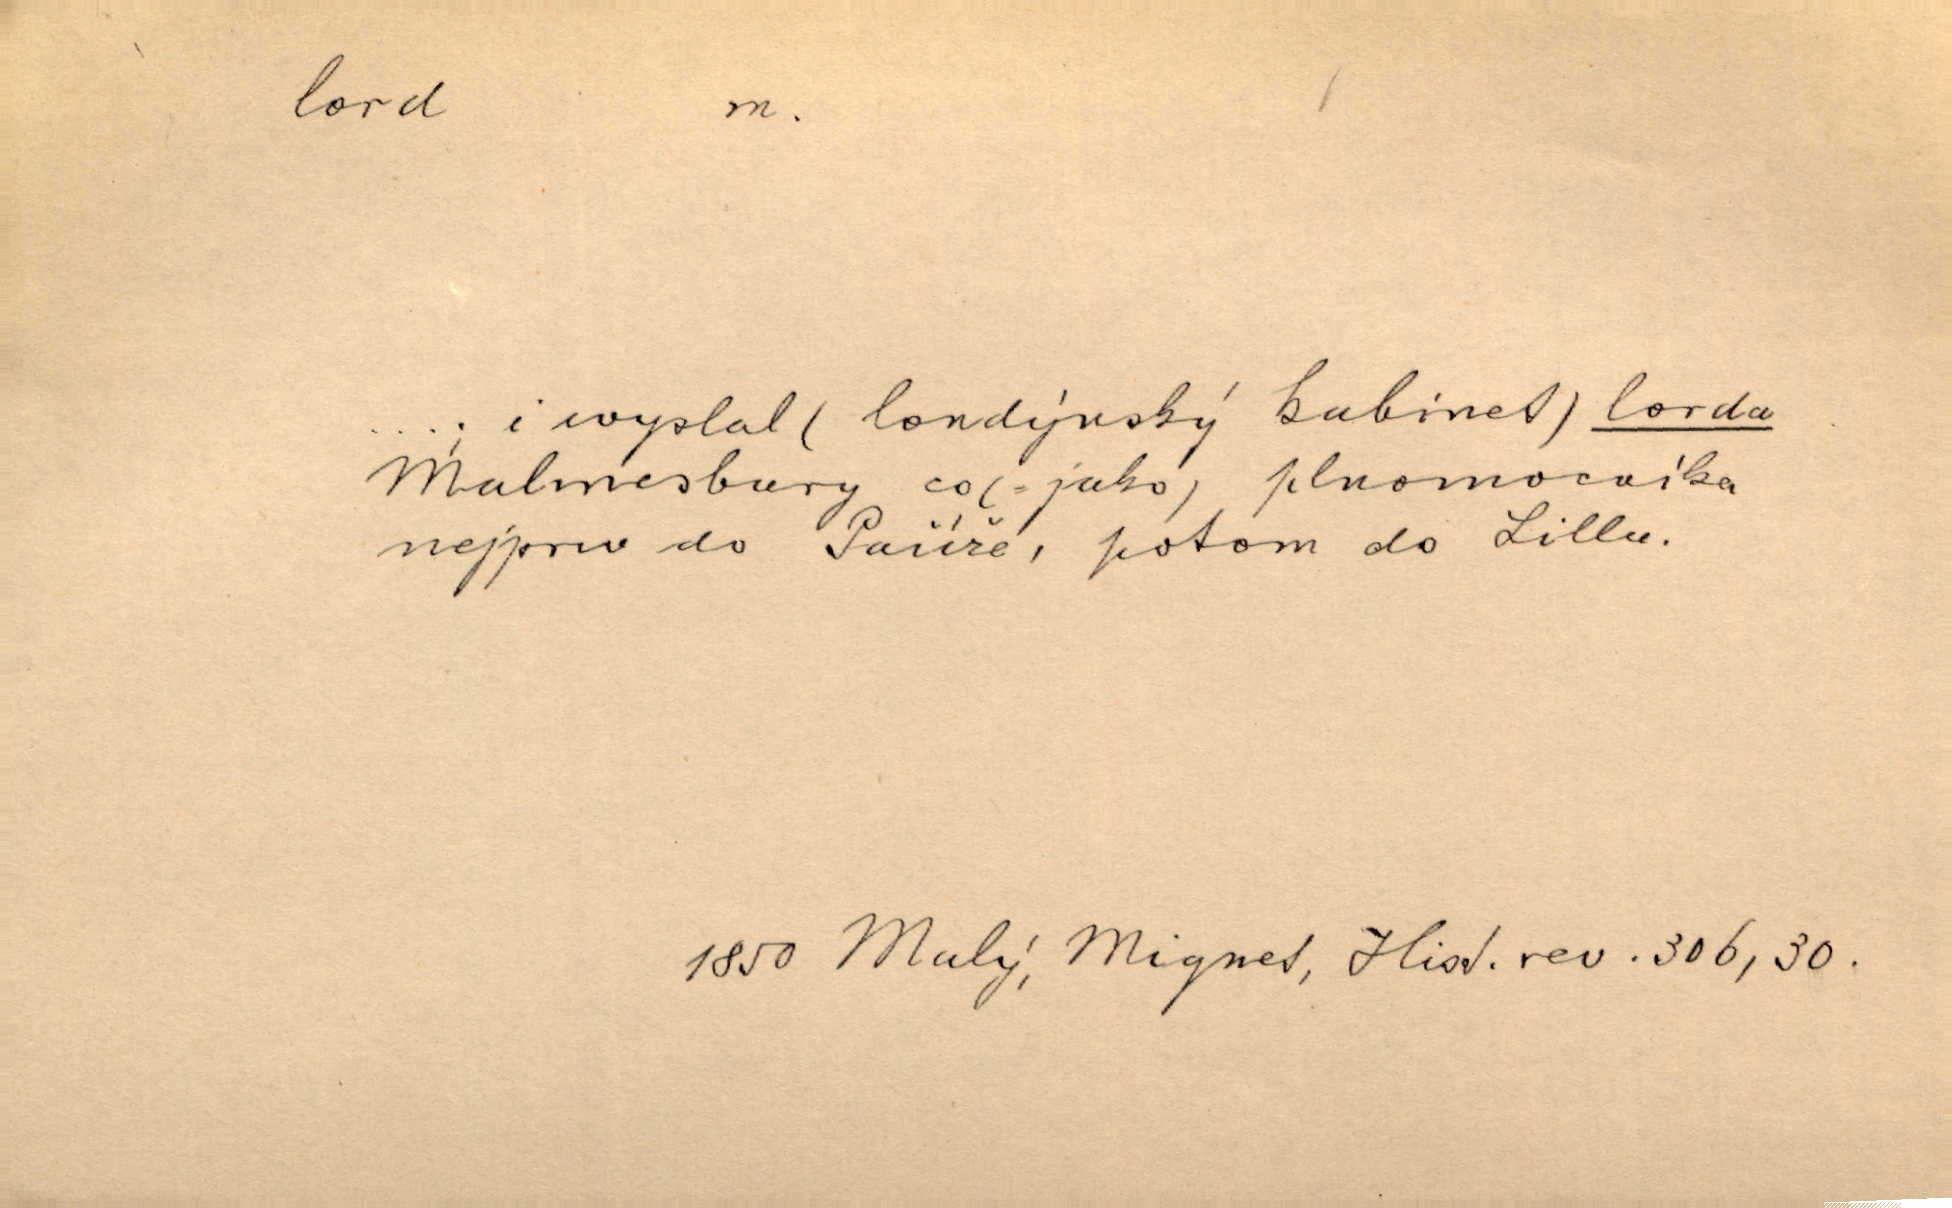 lord m.
....; i wyslal (londýnský kabinet) lorda
Malmesbury co (= jako) plnomocníka
nejprw do Paříže, potom do Lillu.
1850 Malý, Mignet, Hist. rev. 306, 30.